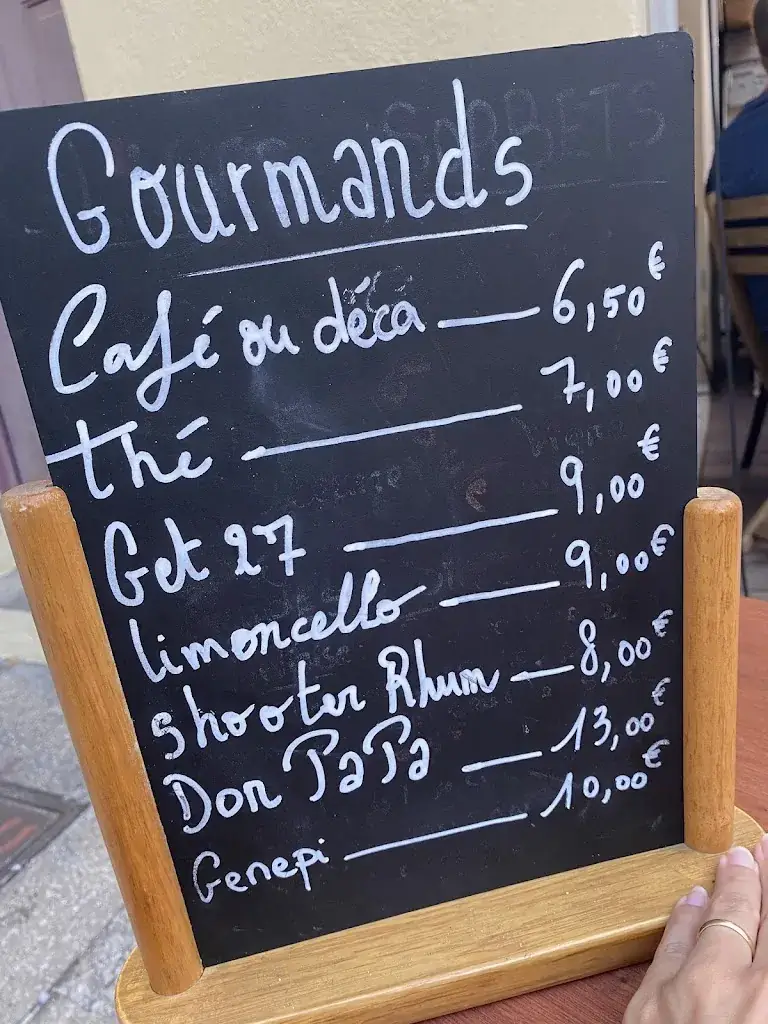 Gourmands
Café ou déca — 6,50€
thé — 7,00€
Get 27 — 9,00€
limoncello — 9,00€
shooter Rhum — 8,00€
Don PaPa — 13,00€
Genepi — 10,00€
SORBETS